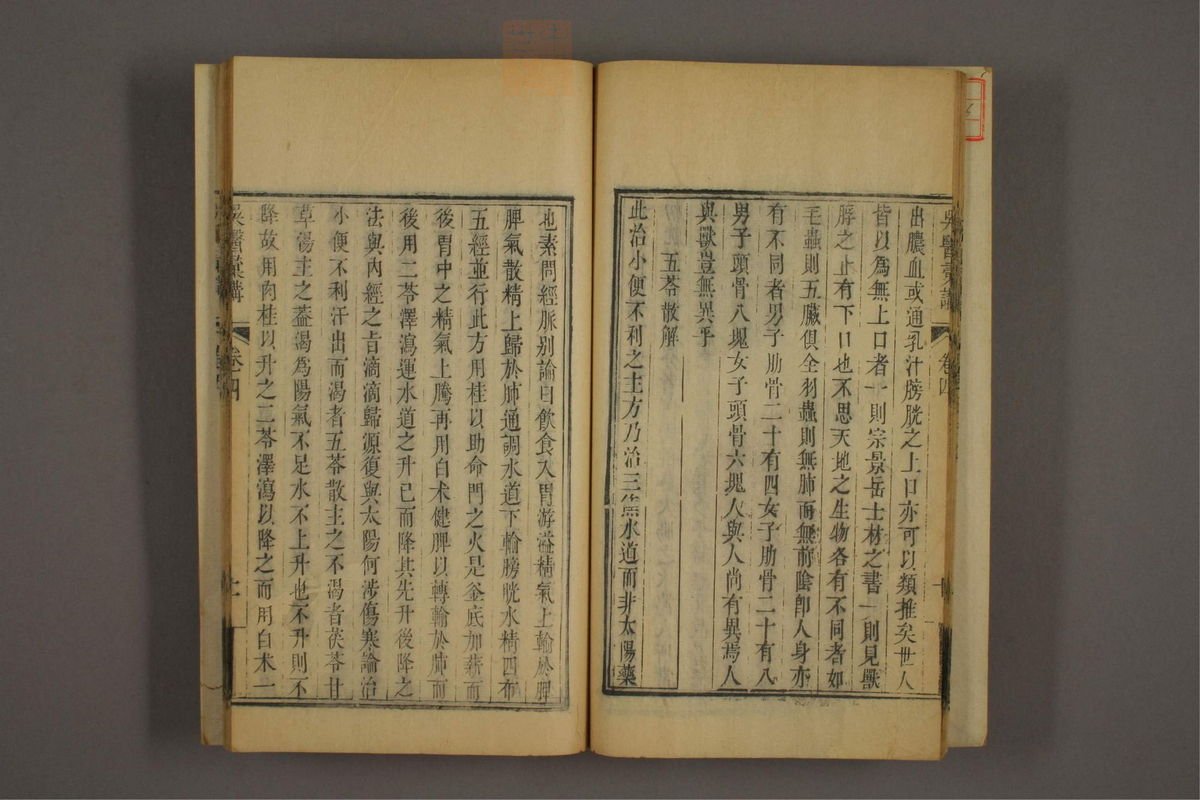 吳醫彙講 卷四
出膿血或通乳汁膀胱之上口亦可以類推矣世人
皆以為無上口者一則宗景岳士材之書一則見獸
脬之止有下口也不思天地之生物各有不同者如
毛蟲則五臟俱全羽蟲則無肺而無前陰卽人身亦
有不同者男子肋骨二十有四女子肋骨二十有八
男子頭骨八塊女子頭骨六塊人與人尚有異焉人
與獸豈無異乎
五苓散解
此治小便不利之主方乃治三焦水道而非太陽藥
也素問經脈别論曰飲食入胃游溢精氣上輸於脾
脾氣散精上歸於肺通調水道下輸膀胱水精四布
五經並行此方用桂以助命門之火是釜底加薪而
後胃中之精氣上騰再用白术健脾以轉輸於肺而
後用二苓澤瀉運水道之升已而降其先升後降之
法與內經之旨滴滴歸源復與太陽何涉傷寒論治
小便不利汗出而渴者五苓散主之不渴者茯苓甘
草湯主之葢渴為陽氣不足水不上升也不升則不
降故用肉桂以升之二苓澤瀉以降之而用白术一
吳醫彙講 卷四 十一